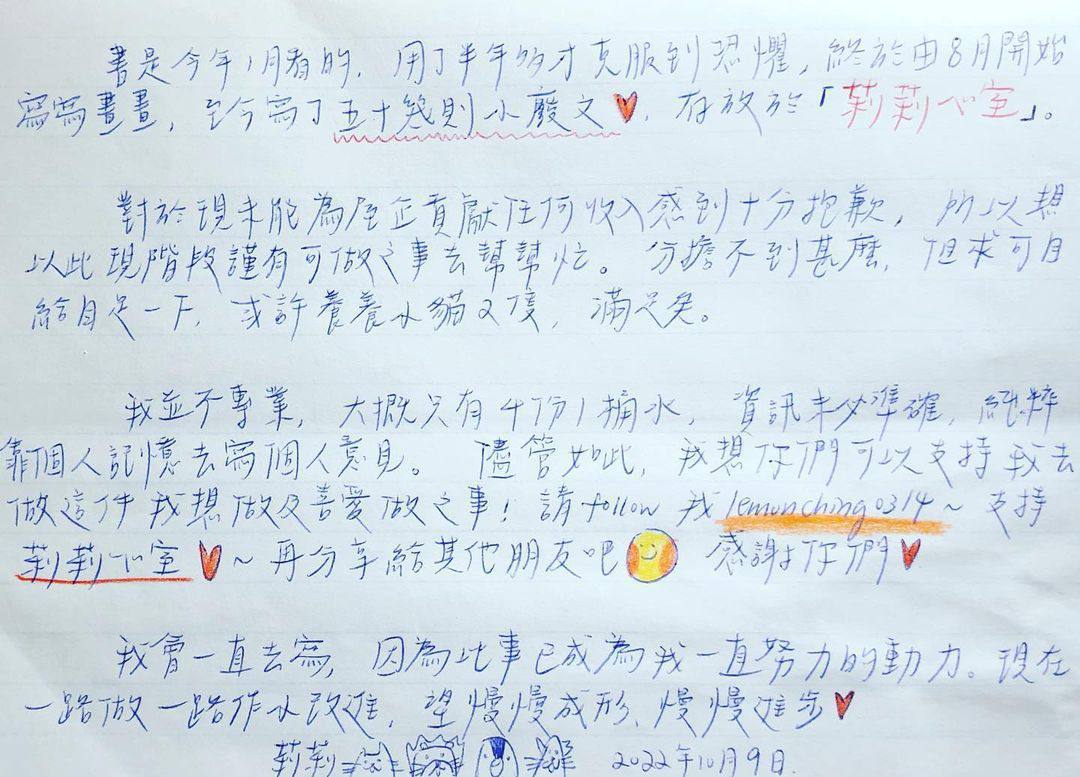 書是今年1月看的，用了半年多才克服到恐懼，終於由8月開始
寫寫畫畫，至今寫了五十幾則小廢文，存放於「莉莉心室」。
對於現未能為屋企貢獻任何收入感到十分抱歉，所以想
以此現階段謹有可做之事去幫幫忙。分擔不到甚麼，但求可自
給自足一下，或許養養小貓2隻，滿足矣。
我並不專業，大概只有4份1桶水，資訊未必準確，純粹
靠個人記憶去寫個人意見。儘管如此，我想你們可以支持我去
做這件我想做及喜愛做之事！請follow我lemonching0314~支持
莉莉心室~再分享給其他朋友吧 感謝你們
我會一直去寫，因為此事已成為我一直努力的動力。現在
一路做一路作小改進，望慢慢成形，慢慢進步
莉莉 2022年10月9日.